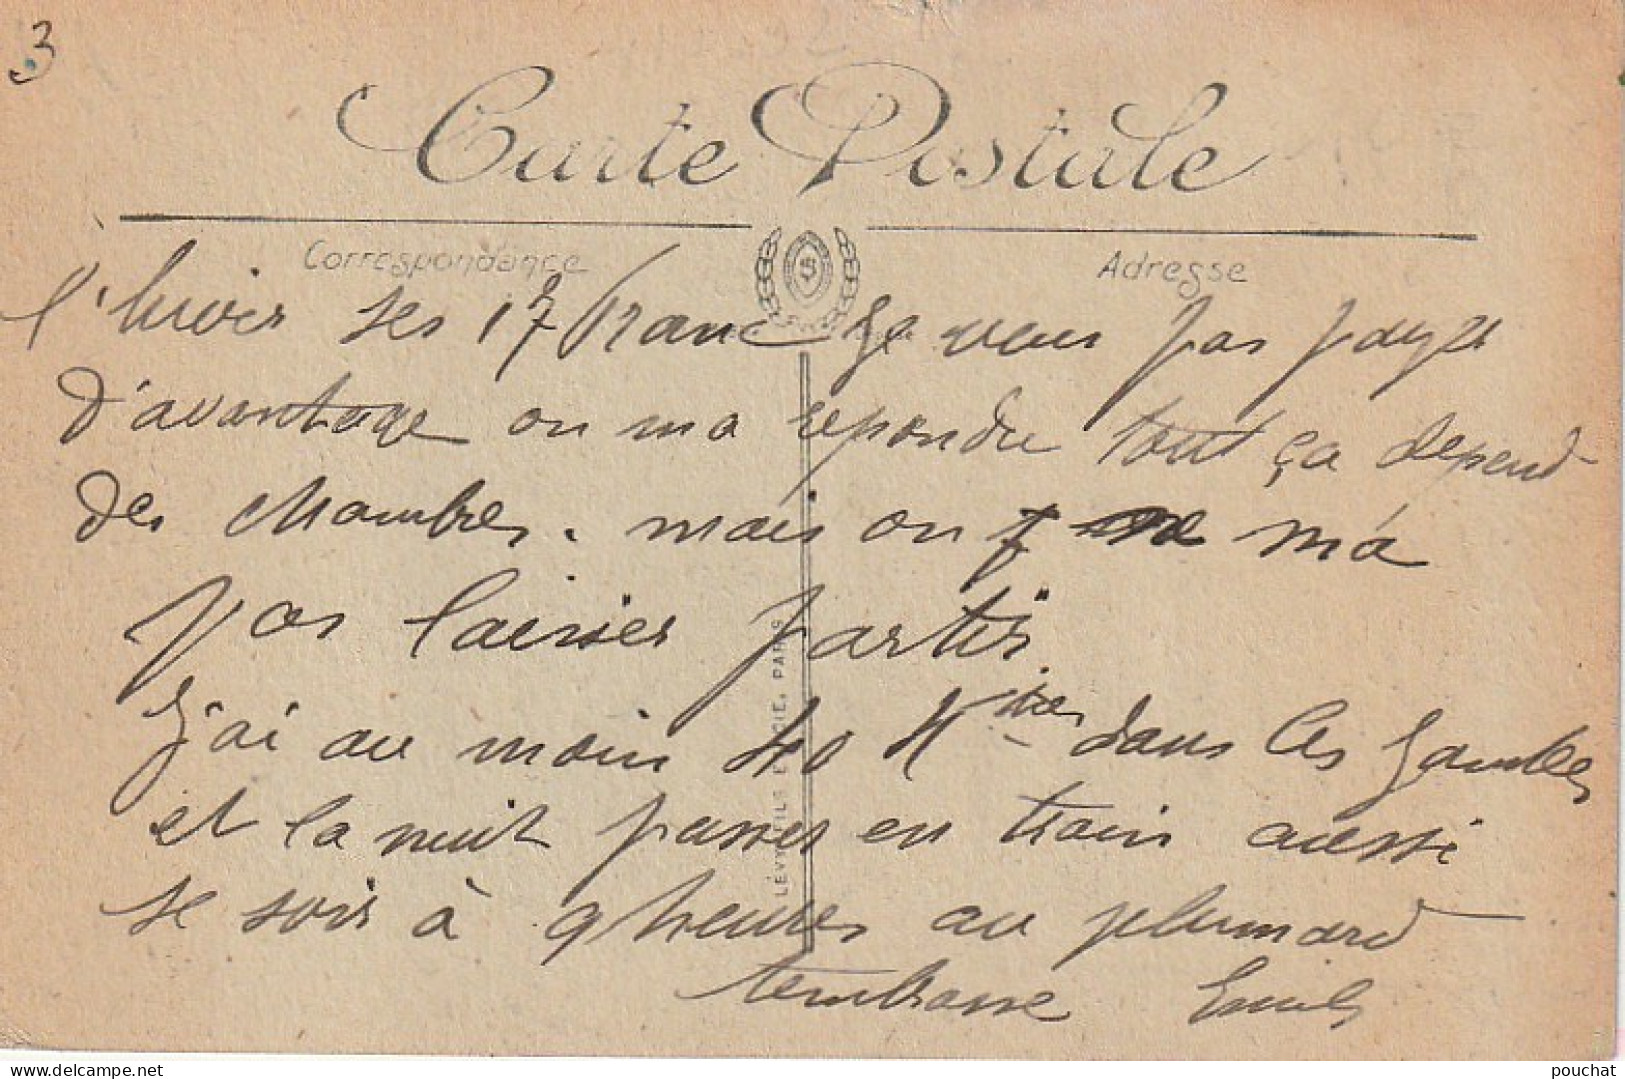 3
Carte Postale
Correspondance
Adresse
l'hiver ses 17 Franc Je veux pas payer
d'avantage on ma repondu tout ça depend
des chambres. mais on ma
pas laisser partir.
J'ai au moin 40 Kmtres dans les Jambes
et la nuit passer en train aussi
se soir à 9 heures au plumard
tembrasse Emile
LÉVY FILS ET CIE, PARIS
pouchat